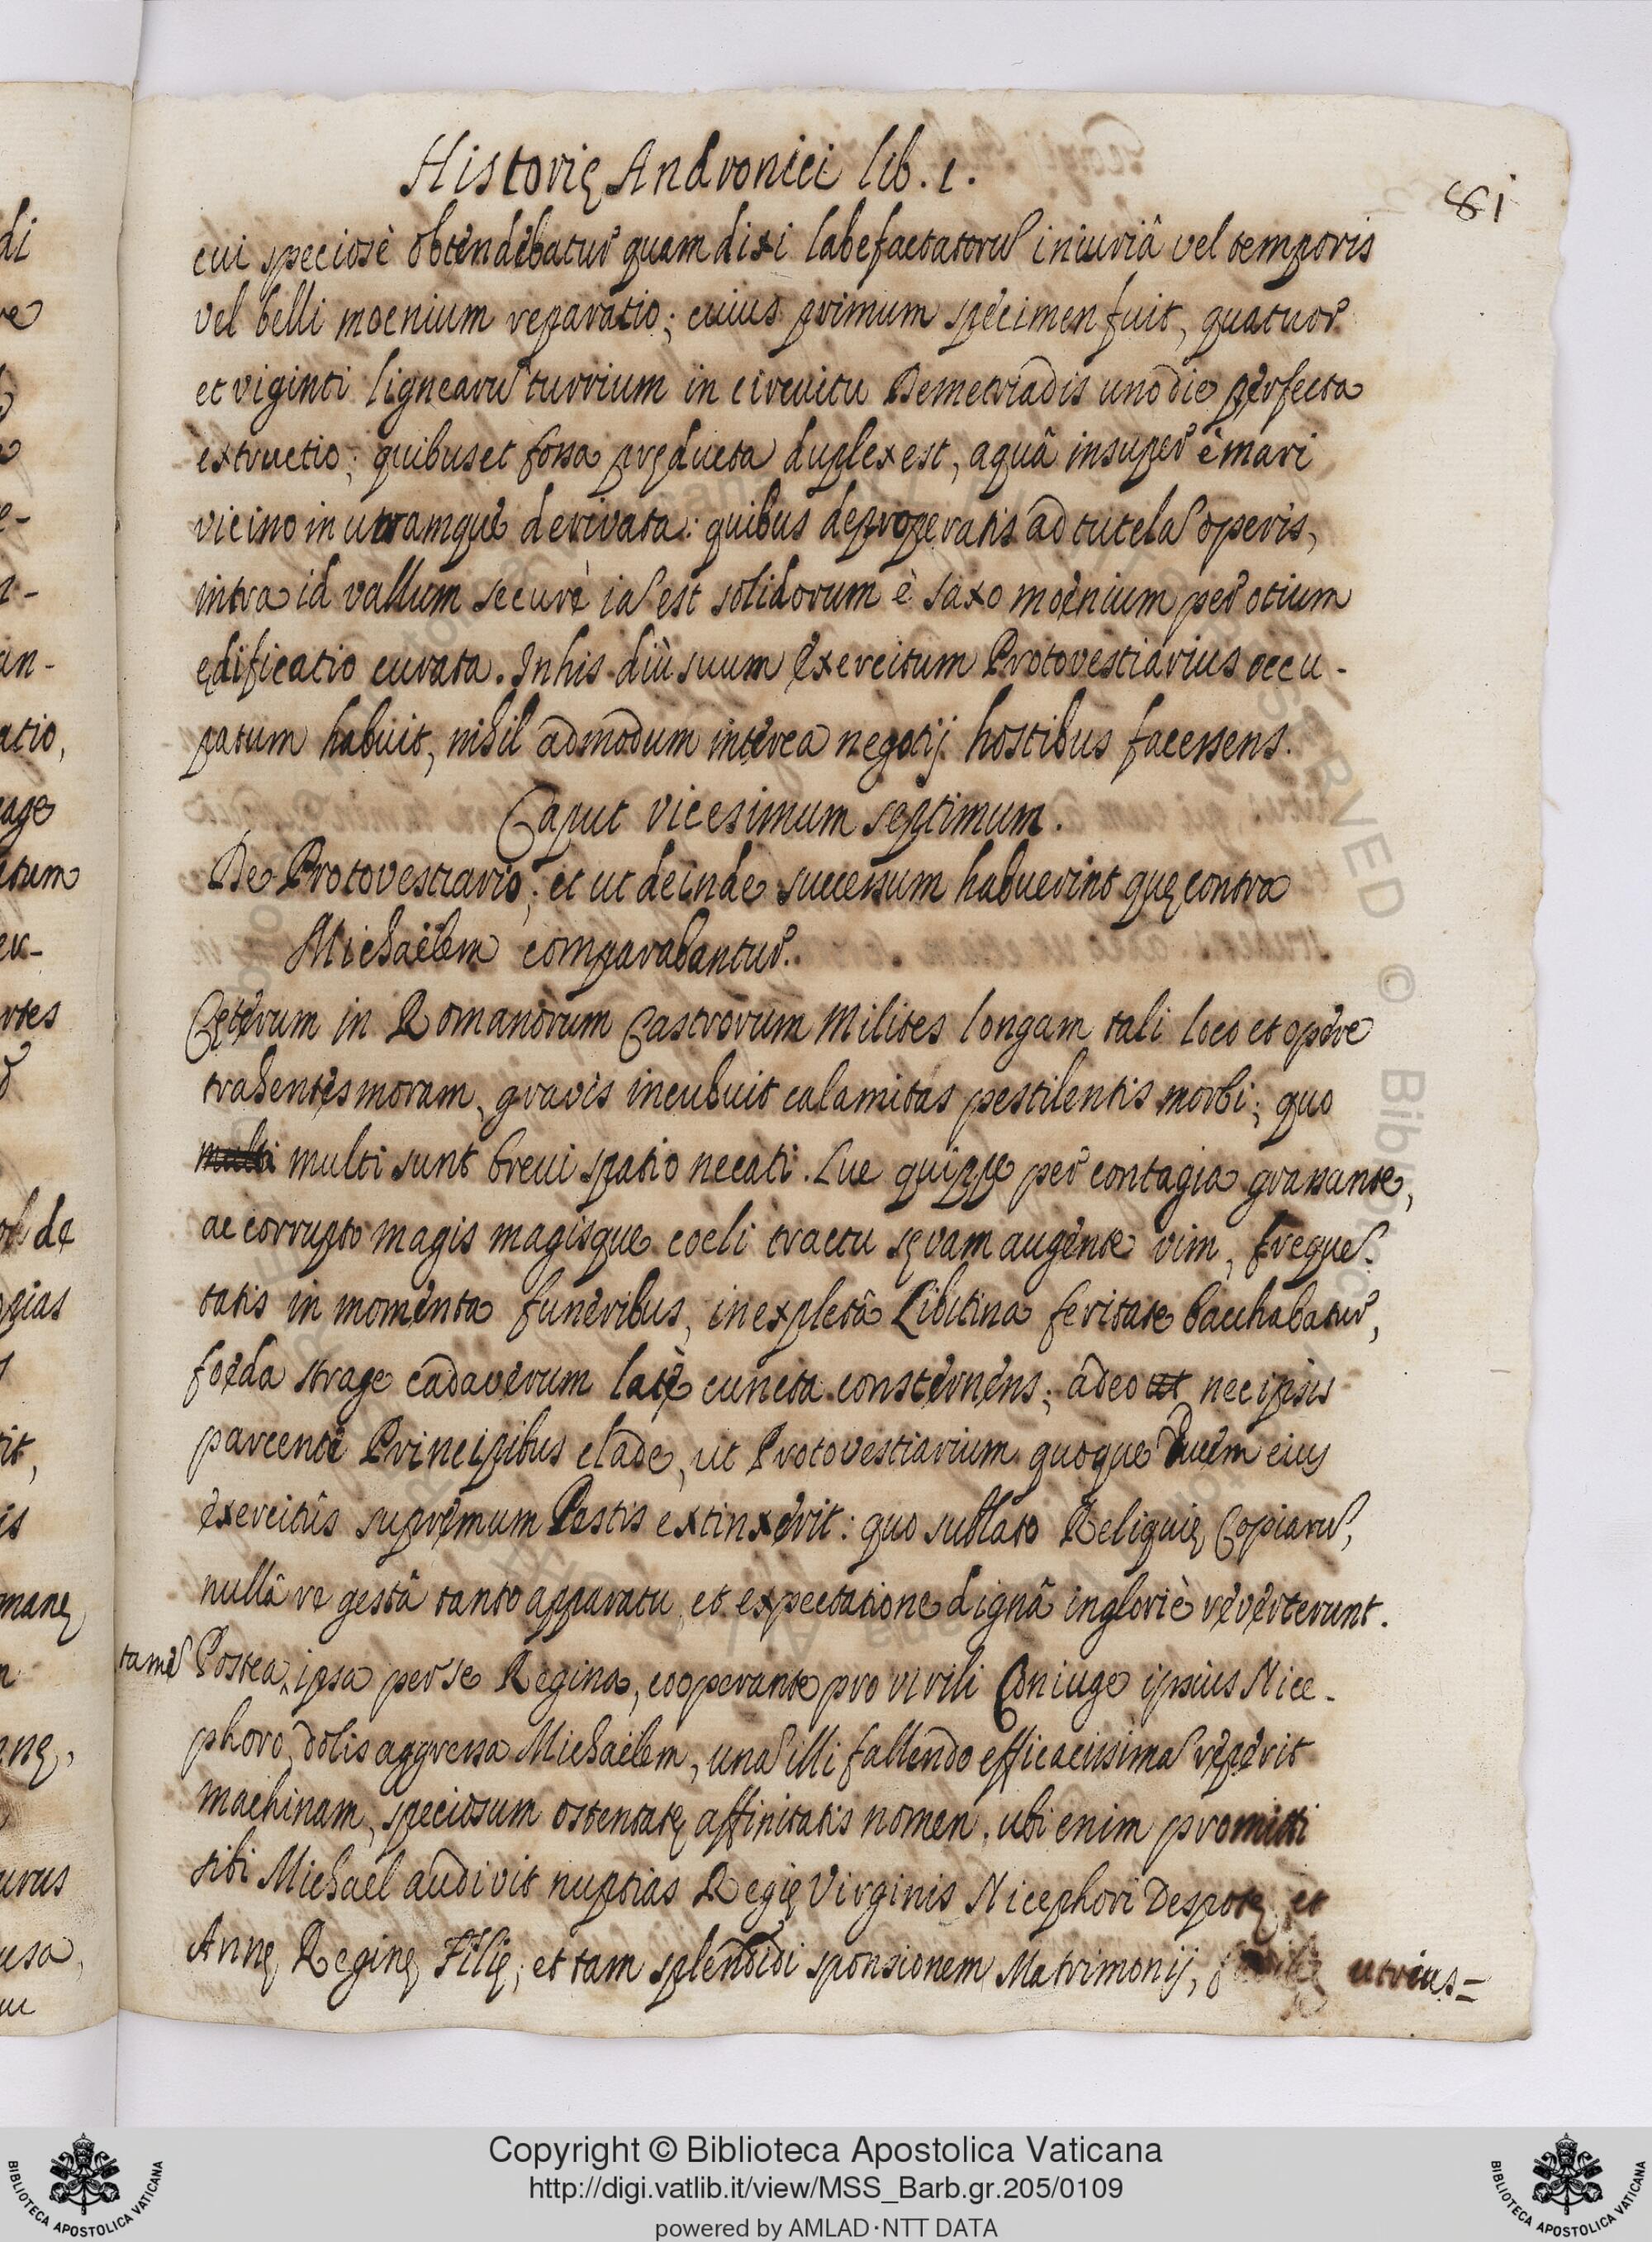 Historię Andronici lib. 1.
81
cui speciosè obtendebatur quam dixi labefactatorũ iniuriâ vel temporis
vel belli moenium reparatio; cuius primum specimen fuit, quatuor
et viginti lignearũ turrium in circuitu Demetriadis uno die perfecta
extructio; quibus et fossa pręducta duplex est, aquâ insuper è mari
vicino in utramque derivata: quibus deproperatis ad tutelã operis,
intra id vallum securè iã est solidorum è saxo moenium per otium
ędificatio curata. In his diù suum exercitum Protovestiarius occu-
patum habuit, nihil admodum interea negotij hostibus facessens.
Caput vicesimum septimum.
De Protovestiario; et ut deinde successum habuerint quę contra
Michaëlem comparabantur.
Cęterum in Romanorum Castrorum Milites longam tali loco et opere
trahentes moram, gravis incubuit calamitas pestilentis morbi; quo
multi multi sunt breui spatio necati. Lue quippe per contagia grassante,
ac corrupto magis magisque coeli tractu sęvam augente vim, frequẽ-
tatis in momenta funeribus, inexpletâ Libitina feritate bacchabatur,
foeda strage cadaverum latè cuncta consternens; adeo ut nec ipsis
parcente Principibus clade, ut Protovestiarium quoque Ducem eius
exercitûs supremum Pestis extinxerit: quo sublato Reliquię Copiarũ,
nullâ re gestâ tanto apparatu, et expectatione dignâ ingloriè reverterunt.
tamẽ Postea, ipsa per se Regina, cooperante pro virili Coniuge ipsius Nice-
phoro, dolis aggressa Michaëlem, unã illi fallendo efficacissimã reperit
machinam, speciosum ostentatę affinitatis nomen. ubi enim promitti
sibi Michaël audivit nuptias Regię Virginis Nicephori Despotę et
Annę Reginę Filię; et tam splendidi sponsionem Matrimonij, utrius=
di
itum
rtes
de
is
manę
urus
usa,
Copyright © Biblioteca Apostolica Vaticana
http://digi.vatlib.it/view/MSS_Barb.gr.205/0109
powered by AMLAD·NTT DATA
BIBLIOTECA APOSTOLICA VATICANA
BIBLIOTECA APOSTOLICA VATICANA